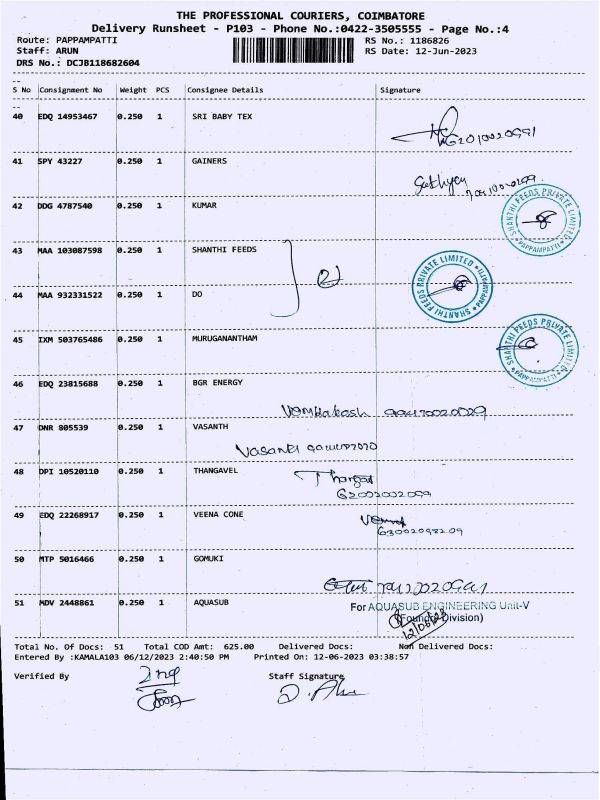 THE PROFESSIONAL COURIERS, COIMBATORE
Delivery Runsheet - P103 - Phone No.:0422-3505555 - Page No.:4
Route: PAPPAMPATTI RS No.: 1186826
Staff: ARUN RS Date: 12-Jun-2023
DRS No.: DCJB118682604
S No Consignment No Weight PCS Consignee Details Signature
40 EDQ 14953467 0.250 1 SRI BABY TEX
41 SPY 43227 0.250 1 GAINERS
Sathya
42 DDG 4787540 0.250 1 KUMAR
SHANTHI FEEDS PRIVATE LIMITED * PAPPAMPATTI *
43 MAA 103087598 0.250 1 SHANTHI FEEDS
44 MAA 932331522 0.250 1 DO
SHANTHI FEEDS PRIVATE LIMITED * PAPPAMPATTI *
45 IXM 503765486 0.250 1 MURUGANANTHAM
SHANTHI FEEDS PRIVATE LIMITED * PAPPAMPATTI *
46 EDQ 23815688 0.250 1 BGR ENERGY
47 DNR 805539 0.250 1 VASANTH
Vasanth
48 DPI 10520110 0.250 1 THANGAVEL
49 EDQ 22268917 0.250 1 VEENA CONE
50 MTP 5016466 0.250 1 GOMUKI
51 MDV 2448861 0.250 1 AQUASUB
For AQUASUB ENGINEERING Unit-V
(Foundry Division)
Total No. Of Docs: 51 Total COD Amt: 625.00 Delivered Docs: Non Delivered Docs:
Entered By :KAMALA103 06/12/2023 2:40:50 PM Printed On: 12-06-2023 03:38:57
Verified By Staff Signature